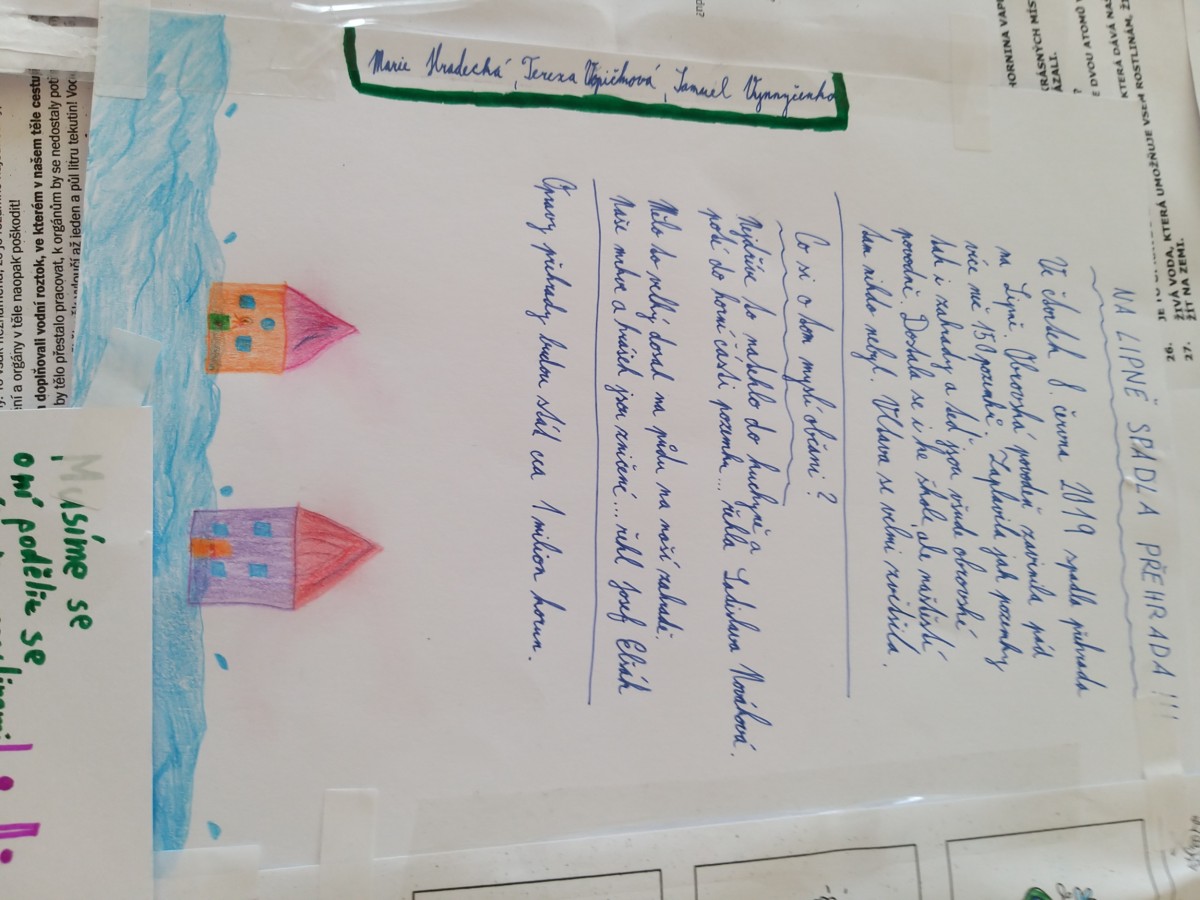 NA LIPNĚ SPADLA PŘEHRADA!!!
Ve čtvrtek 8. června 2019 spadla přehrada
na Lipně. Obrovská povodeň zavinila pád
více než 150 pozemků. Zaplavila jak pozemky
tak i zahrady a teď jsou všude obrovské
povodně. Dostala se i ke škole, ale naštěstí
tam nikdo nebyl. Vltava se velmi zvětšila.
Co si o tom myslí občani?
Nejdříve to nateklo do kuchyně a
poté do horní části pozemku... řekla Ladislava Nováková.
Mělo to velký dosah na půdu na naší zahradě.
Naše mrkve a hrášek jsou zničené... řekl Josef Eliáš
Opravy přehrady budou stát cca 1 milion korun.
Marie Hradecká, Tereza, Samuel Vynnyčenko
Musíme se
o ní podělit se
du?
HORNINA VAPN
KRÁSNÝCH MÍST
ÁZALI.
?
E DVOU ATOMŮ V
KTERÁ DÁVÁ NAŠ
KTERÁ UMOŽŇUJE VŠEM ROSTLINÁM, ŽI
JE TO
26. ŽIVÁ VODA, KTERÁ
ŽÍT NA ZEMI.
27.
ení a orgány v těle naopak poškodit!
doplňovali vodní roztok, ve kterém v našem těle cestu
by tělo přestalo pracovat, k orgánům by se nedostaly potř
až jeden a půl litru tekutin! Vod